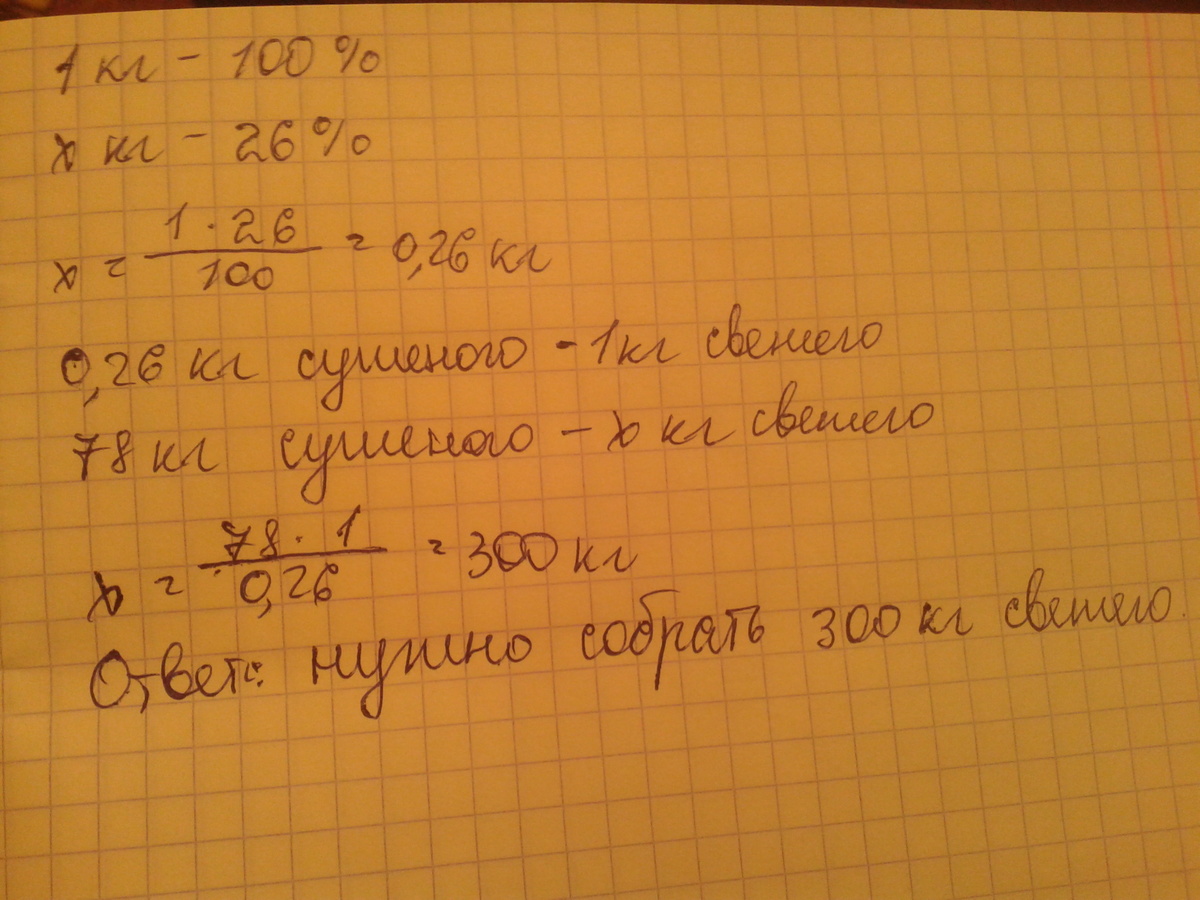 1 кг - 100%
x кг - 26%
x = 1 · 26 / 100 = 0,26 кг
0,26 кг сушеного - 1 кг свежего
78 кг сушеного - x кг свежего
x = 78 · 1 / 0,26 = 300 кг
Ответ: нужно собрать 300 кг свежего.